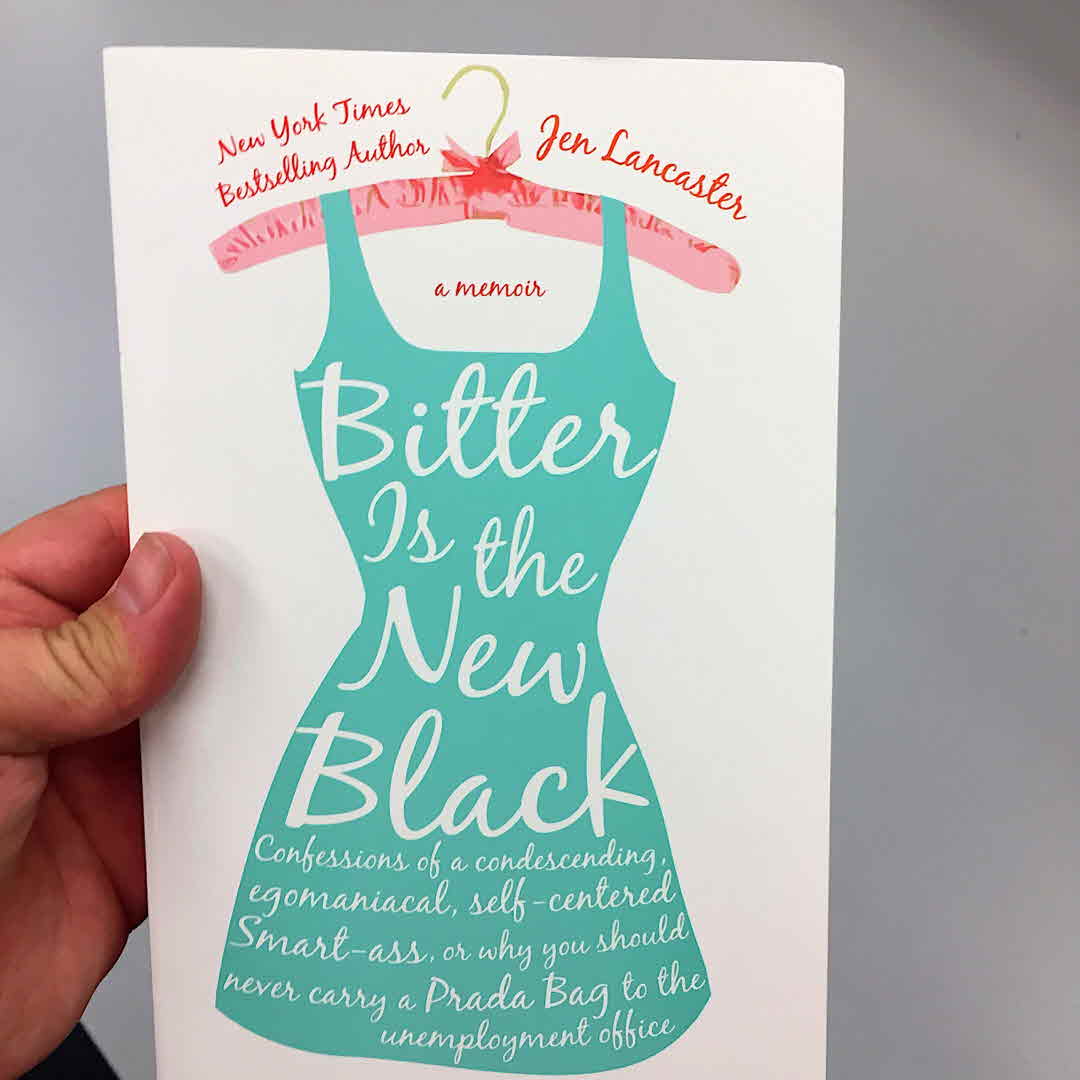 New York Times
Bestselling Author
Jen Lancaster
a memoir
Bitter
Is the
New
Black
Confessions of a condescending,
egomaniacal, self-centered
Smart-ass, or why you should
never carry a Prada Bag to the
unemployment office